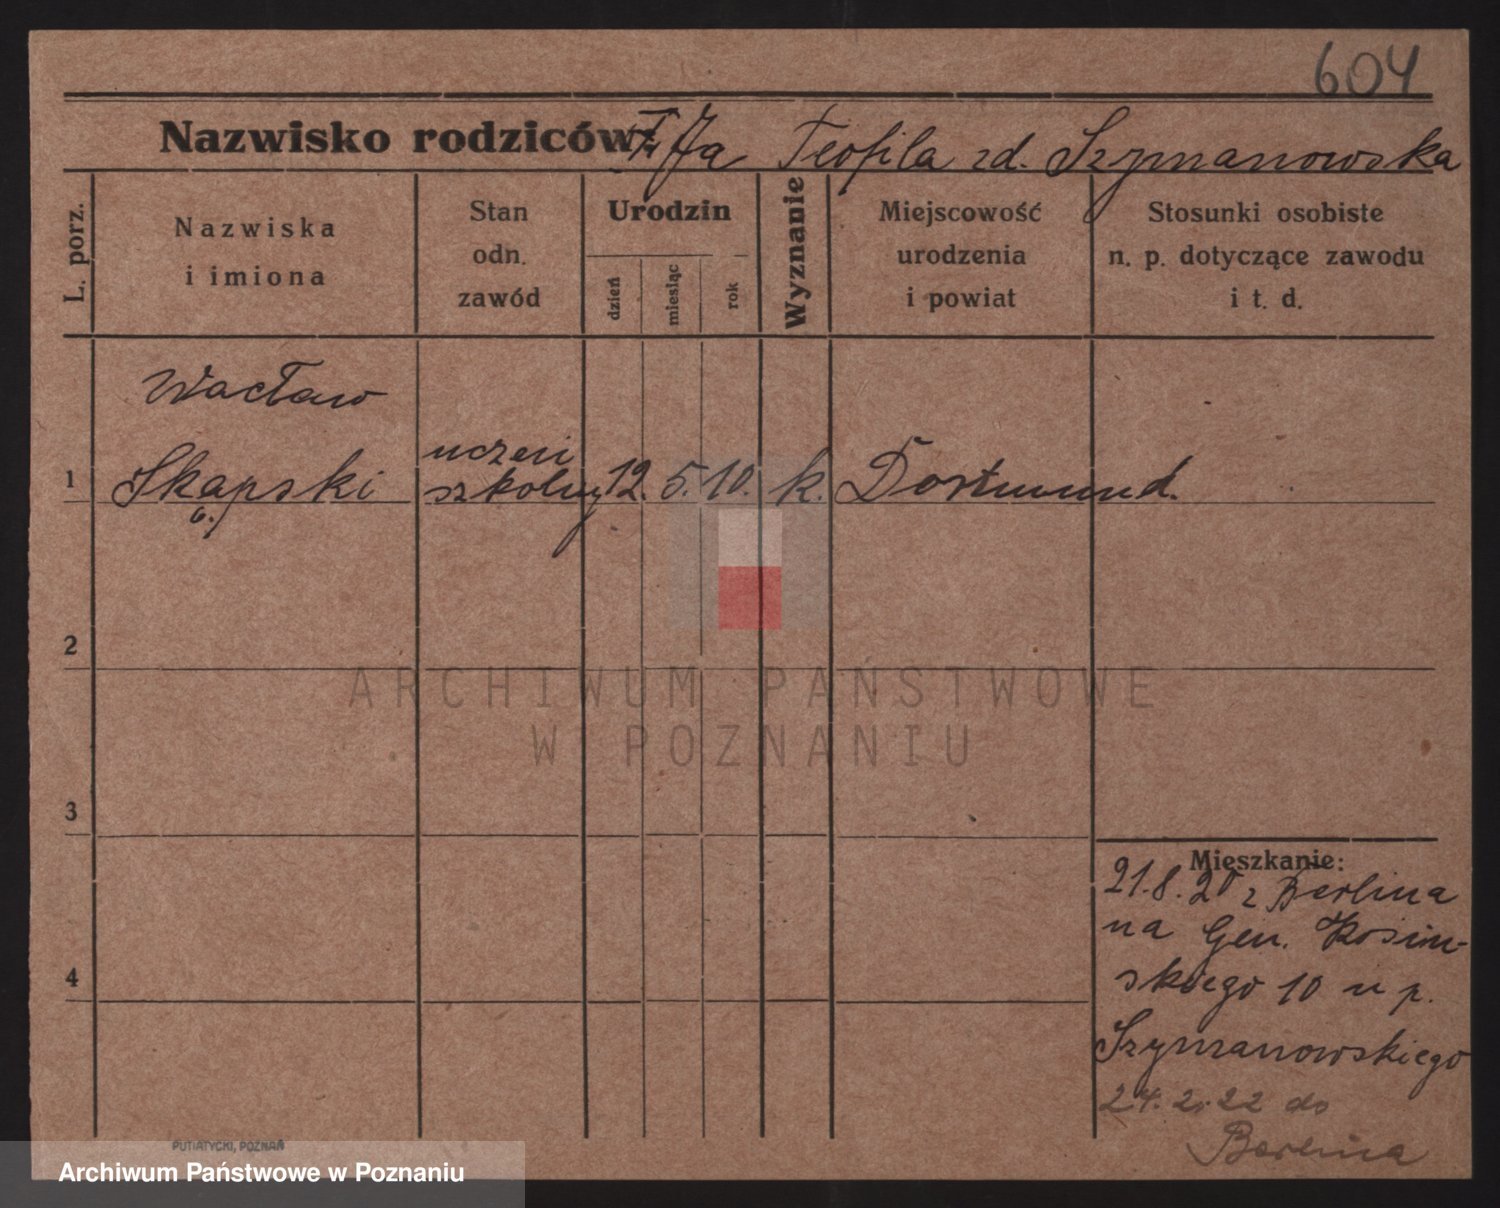 604
Nazwisko rodziców: Teofila zd. Szymanowska
L. porz.
Nazwiska
i imiona
Stan
odn.
zawód
Urodzin
dzień
miesiąc
rok
Wyznanie
Miejscowość
urodzenia
i powiat
Stosunki osobiste
n. p. dotyczące zawodu
i t. d.
Wacław
uczeń
1 Skąpski szkolny 12. 5. 10. k. Dortmund.
2
ARCHIWUM PAŃSTWOWE
W POZNANIU
3
Mieszkanie:
21.8.20 z Berlina
na Gen. Kosiń-
4
skiego 10 u p.
Szymanowskiego
24.2.22 do
Berlina
PUTIATYCKI, POZNAŃ
Archiwum Państwowe w Poznaniu